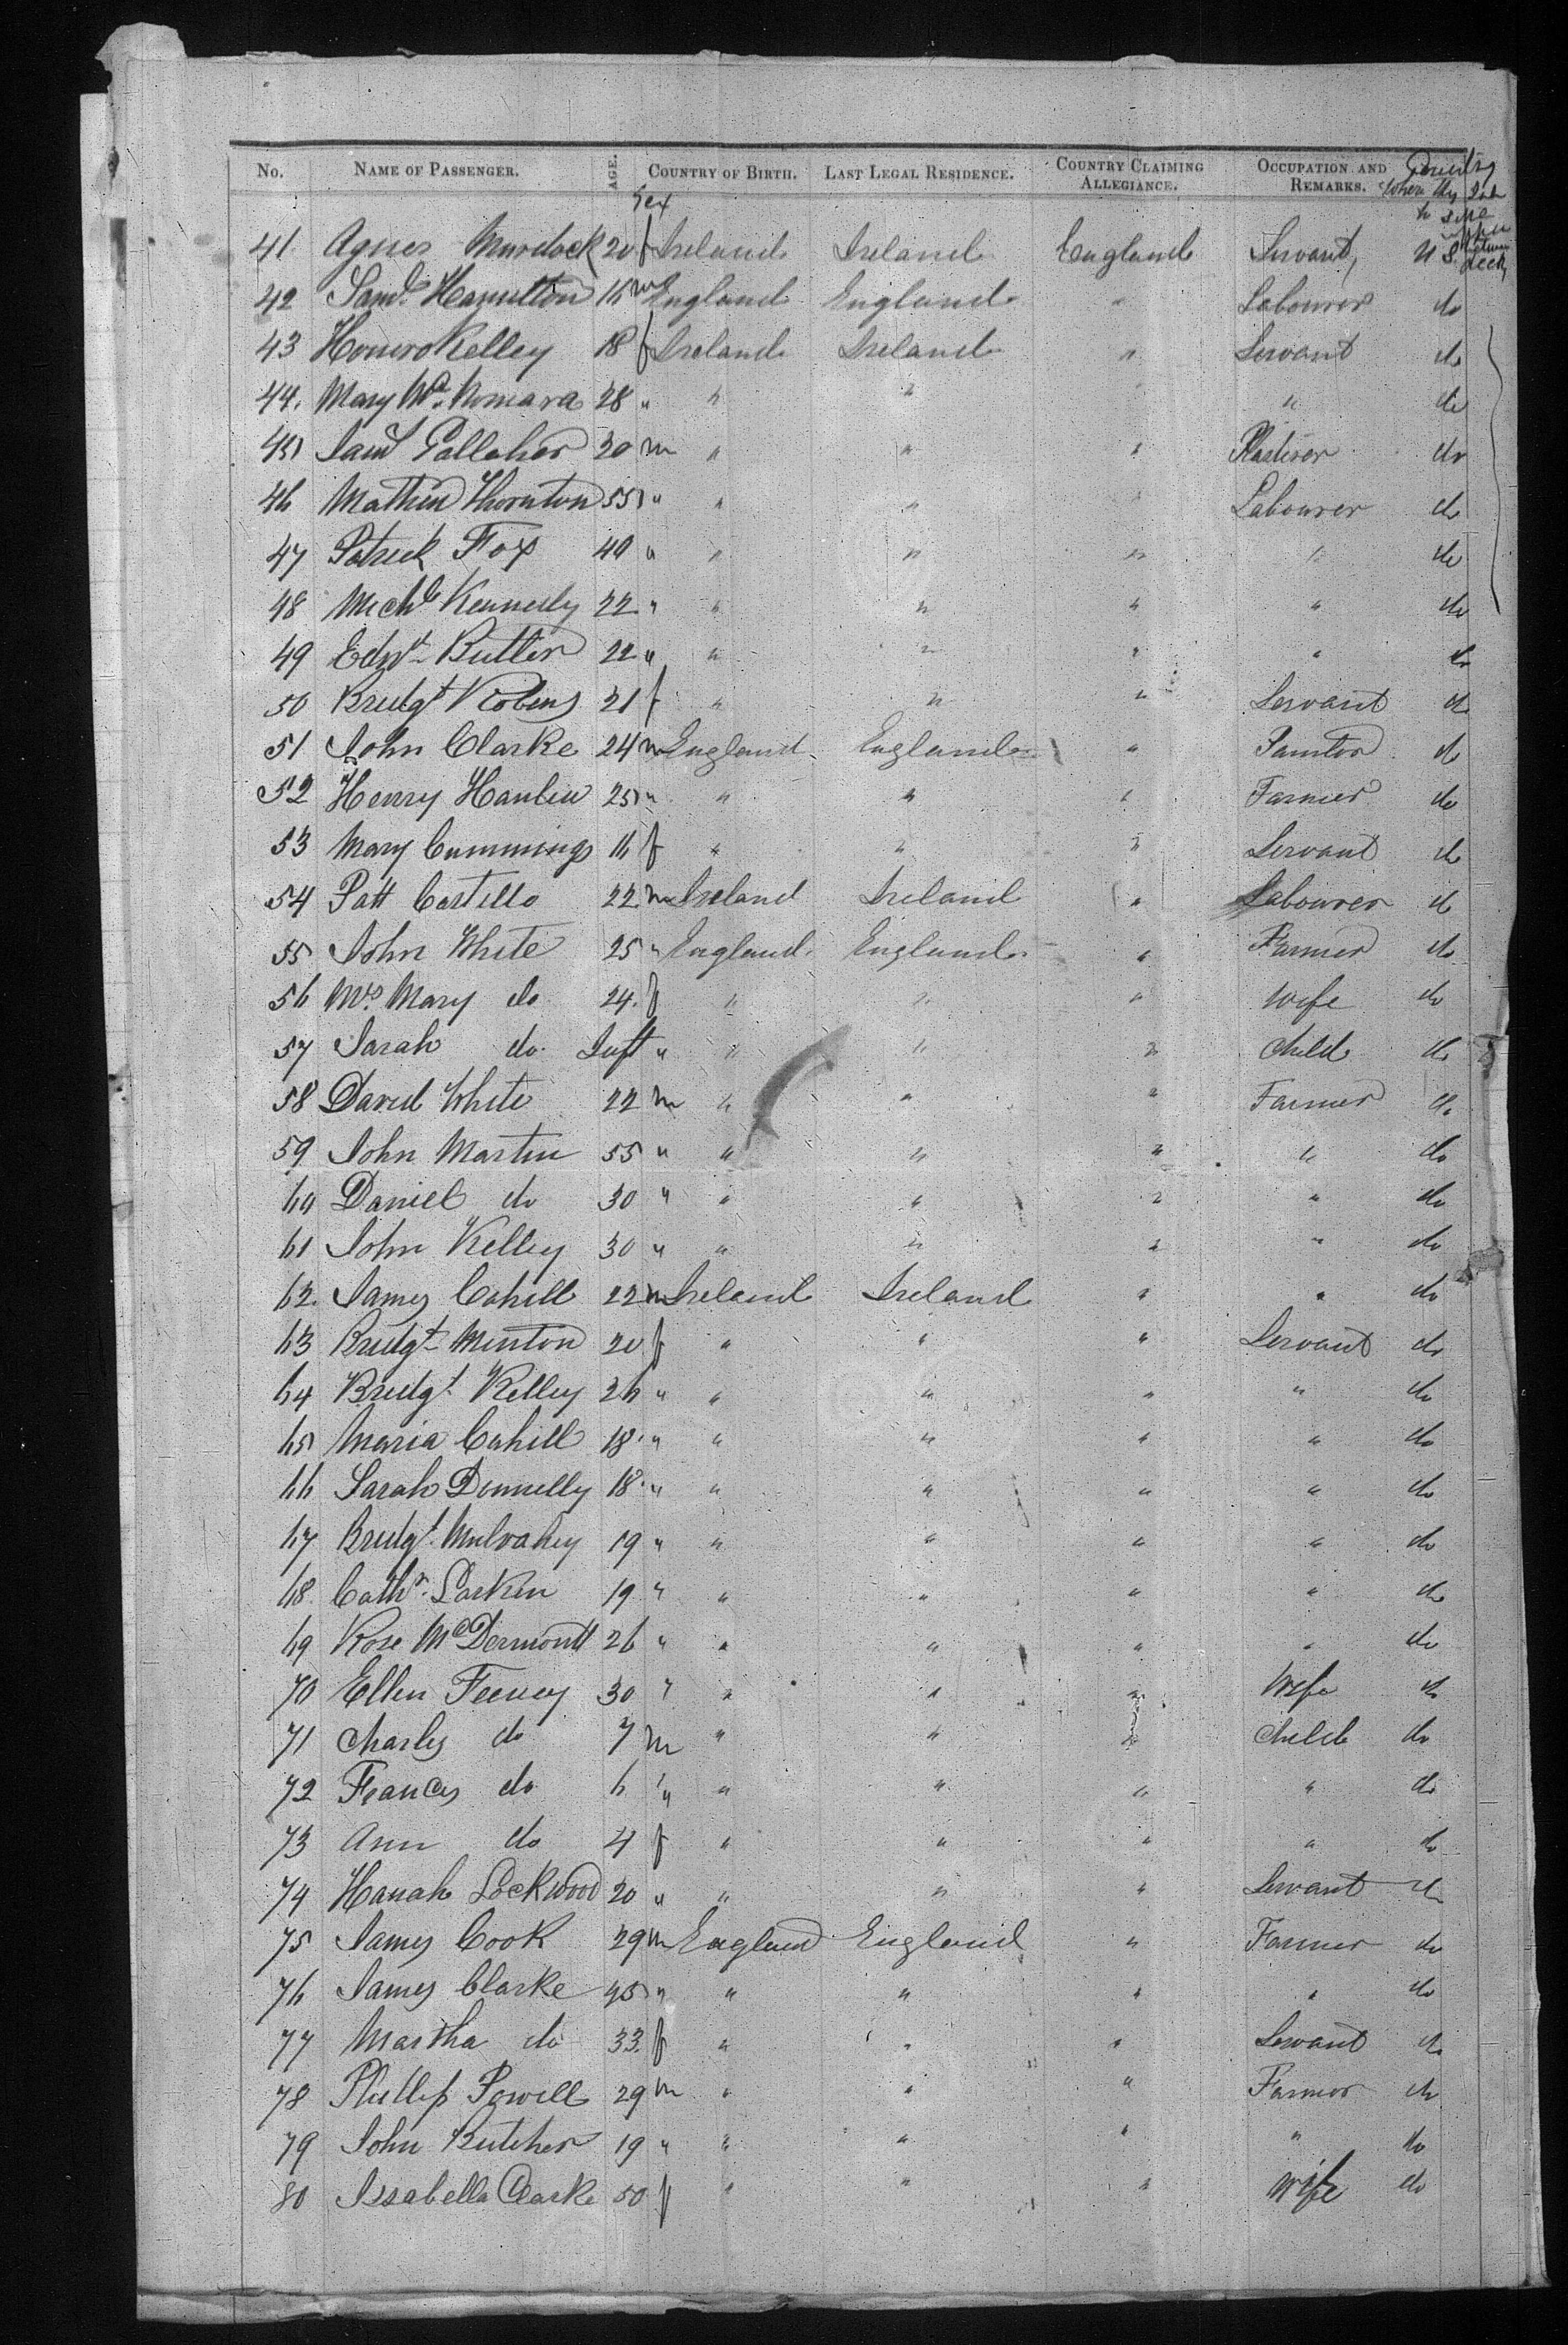 No. NAME OF PASSENGER. AGE. Sex COUNTRY OF BIRTH. LAST LEGAL RESIDENCE. COUNTRY CLAIMING ALLEGIANCE. OCCUPATION AND REMARKS. Country where they
41 Agnes Murdock 20 f Ireland Ireland England Servant, U S.
42 Saml Hamilton 16 m England England " Labourer do
43 Honero Kelley 18 f Ireland Ireland " Servant do
44. Mary Mc Nomara 28 " " " " do
45 Saml Gallaher 30 m " " " Plasterer do
46 Mathew Thornton 55 " " " Labourer do
47 Patrick Fox 40 " " " " " do
48 Michl Kennedy 22 " " " " " do
49 Edwd Butler 22 " " " " " do
50 Bridgt Robins 21 f " " " Servant do
51 John Clarke 24 m England England " Painter do
52 Henry Hanlin 25 " " " " Farmer do
53 Mary Cummings 16 f " " " Servant do
54 Patt Costello 22 m Ireland Ireland " Labourer do
55 John White 25 " England England " Farmer do
56 Mrs Mary do 24. f " " " Wife do
57 Sarah do Inft " " " " Child do
58 David White 22 m " " " Farmer do
59 John Martin 55 " " " " " do
60 Daniel do 30 " " " " " do
61 John Kelley 30 " " " " " do
62. James Cahill 22 m Ireland Ireland " " do
63 Bridgt Minton 20 f " " " Servant do
64 Bridgt Kelley 26 " " " " " do
65 Maria Cahill 18 " " " " " do
66 Sarah Donnelly 18 " " " " " do
67 Bridgt Mulvahey 19 " " " " " do
68. Cathn Larkin 19 " " " " " do
69 Rose McDermontt 26 " " " " " do
70 Ellen Feeney 30 " " " " Wife do
71 Charles do 7 m " " " Child do
72 Frances do 6 " " " " " do
73 Ann do 4 f " " " " do
74 Hanah Lockwood 20 " " " " Servant do
75 James Cook 29 m England England " Farmer do
76 James Clarke 45 " " " " " do
77 Martha do 33. f " " " Servant do
78 Phillip Powell 29 m " " " Farmer do
79 John Butcher 19 " " " " " do
80 Issabella Clarke 50 f " " " Wife do